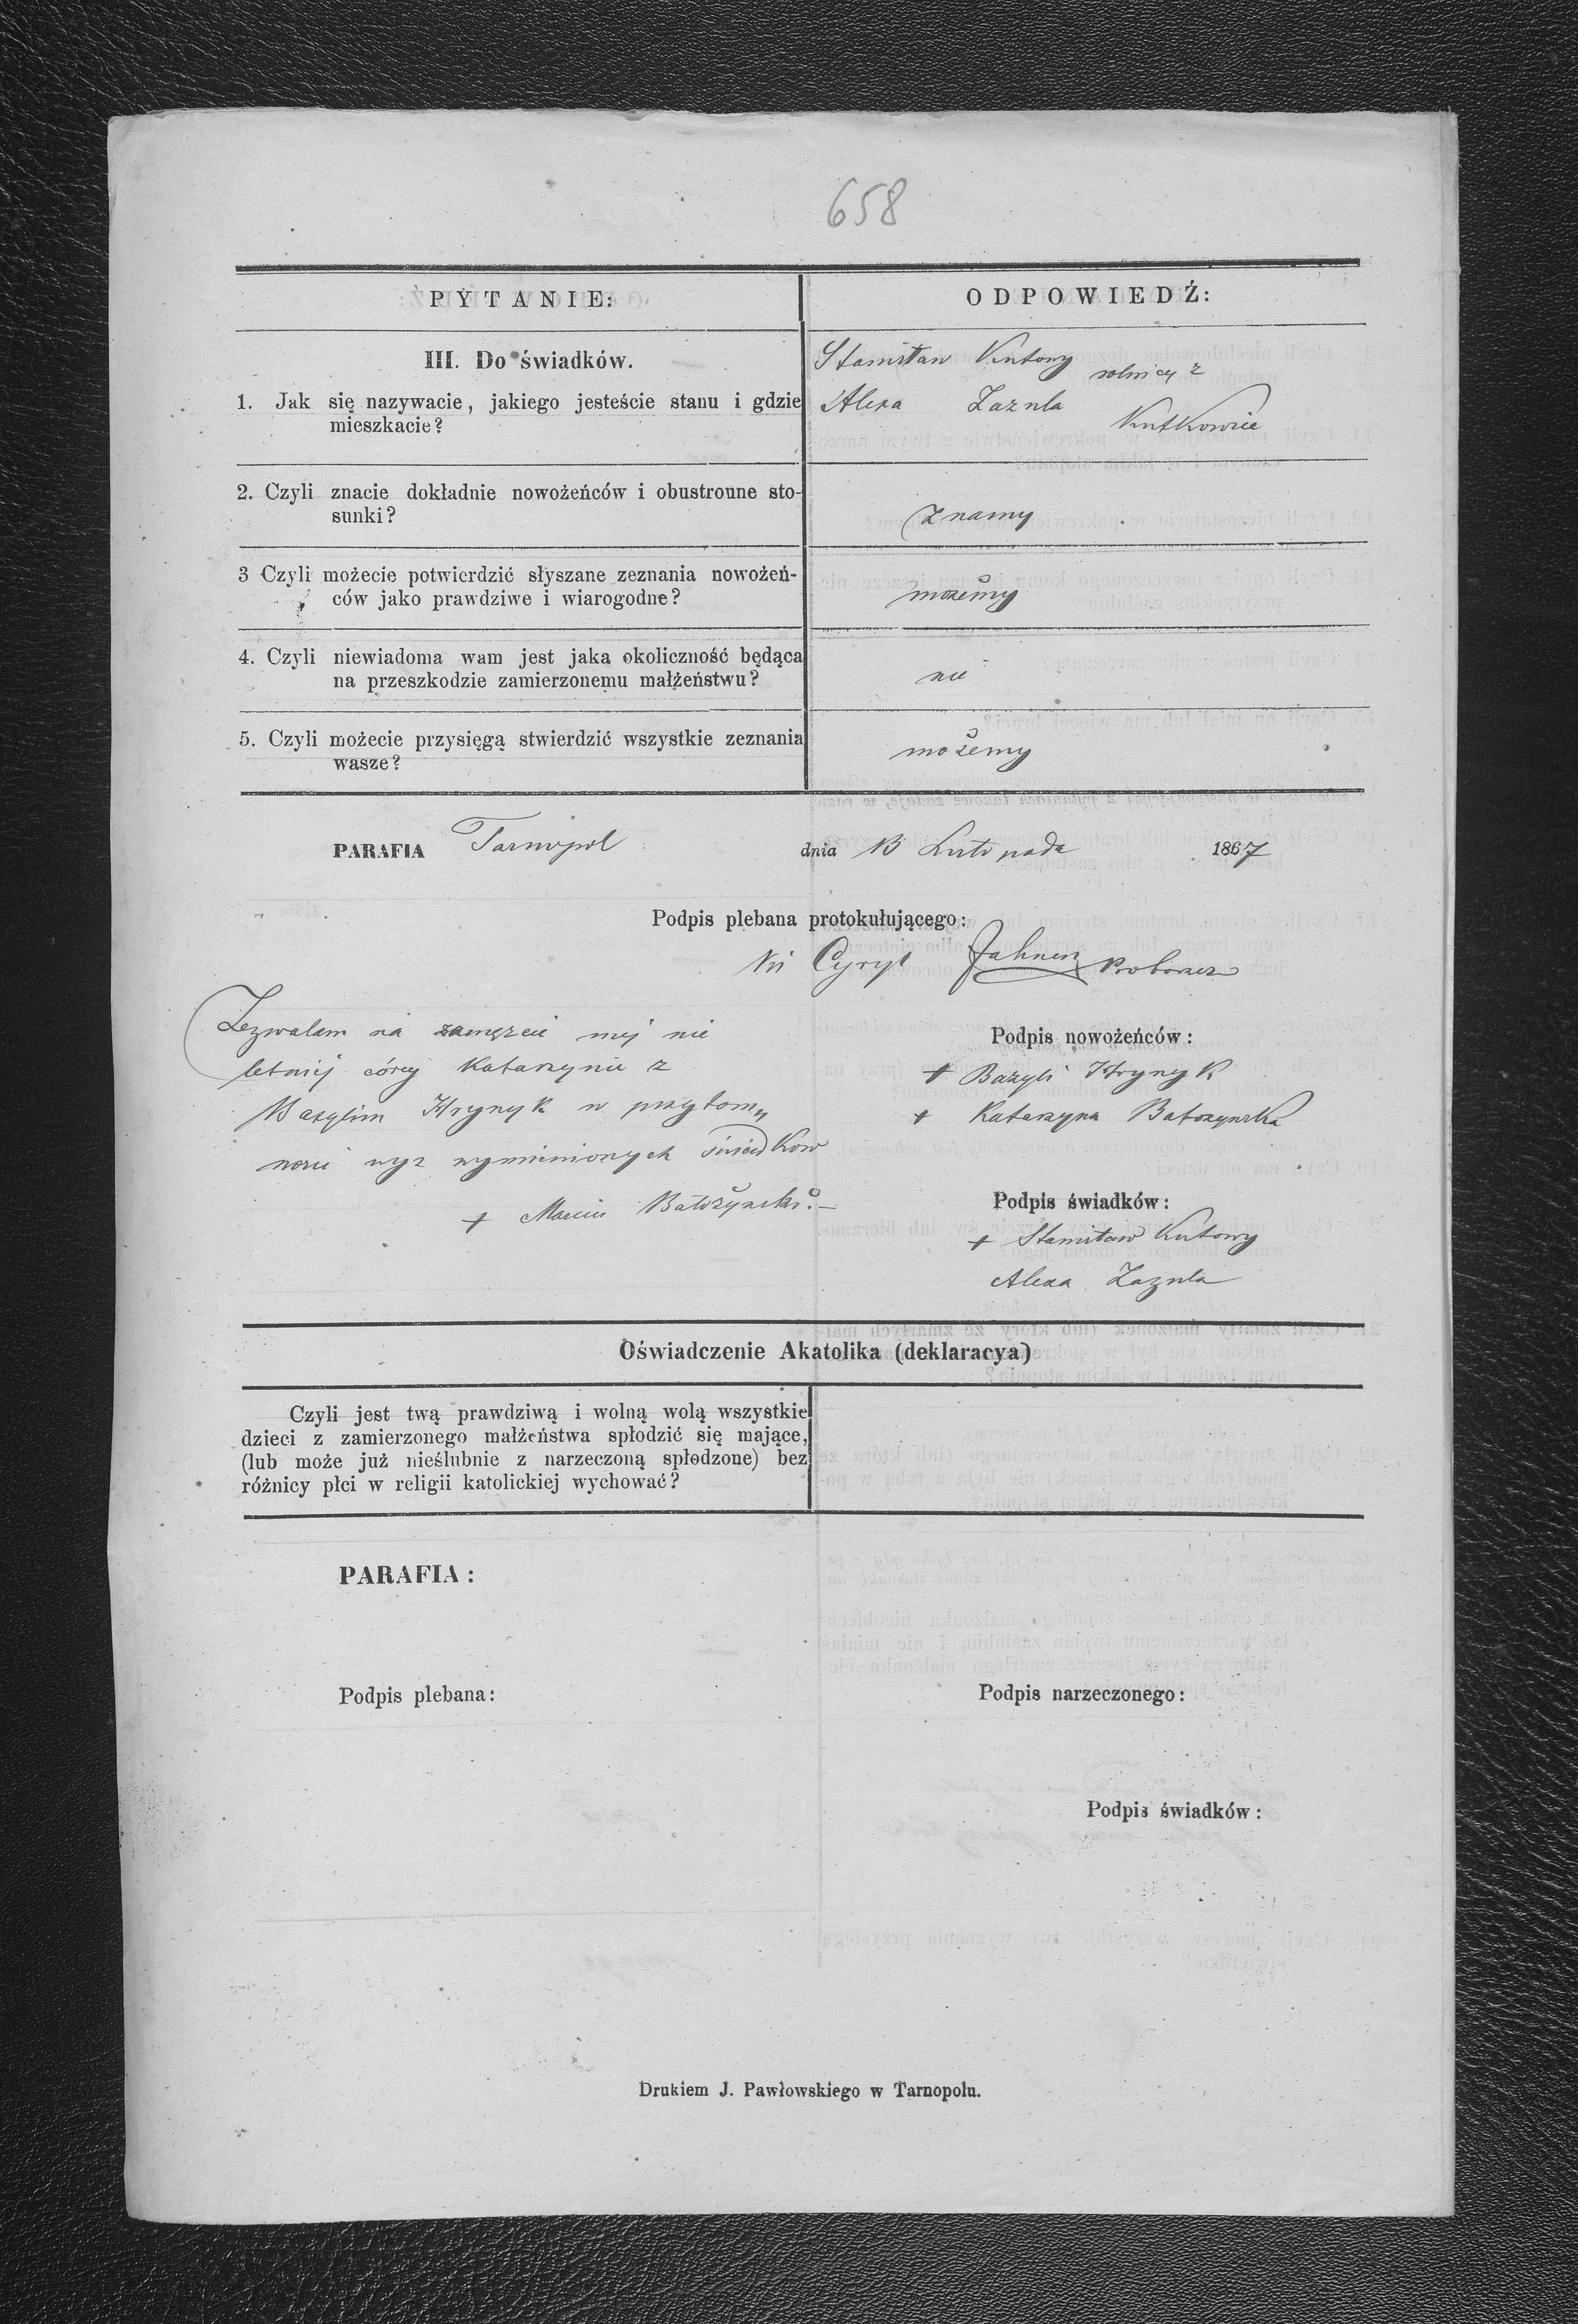 658
PYTANIE:
ODPOWIEDŹ:
III. Do świadków.
1. Jak się nazywacie, jakiego jesteście stanu i gdzie
mieszkacie?
Stanisław Kutowy rolnicy z
Alexa Zazula
Kutkowiec
2. Czyli znacie dokładnie nowożeńców i obustronne sto-
sunki?
znamy
3 Czyli możecie potwierdzić słyszane zeznania nowożeń-
ców jako prawdziwe i wiarogodne?
możemy
4. Czyli niewiadoma wam jest jaka okoliczność będąca
na przeszkodzie zamierzonemu małżeństwu?
nie
5. Czyli możecie przysięgą stwierdzić wszystkie zeznania
wasze?
możemy
PARAFIA Tarnopol dnia 13 Listopada 1867
Podpis plebana protokułującego:
Cyryl
Zezwalam na zamęzcie mej nie
letniej córcy Katarzynie z
Bazylim Hrynyk w przytom„
ności wyz wymienionych świadków
+ Marcin Batożynski.–
Podpis nowożeńców:
+ Bazyli Hrynyk
+ Katarzyna Batożynska
Podpis świadków:
+ Stanisław Kutowy
Alexa Zazula
Oświadczenie Akatolika (deklaracya)
Czyli jest twą prawdziwą i wolną wolą wszystkie
dzieci z zamierzonego małżeństwa spłodzić się mające,
(lub może już nieślubnie z narzeczoną spłodzone) bez
różnicy płci w religii katolickiej wychować?
PARAFIA:
Podpis plebana:
Podpis narzeczonego:
Podpis świadków:
Drukiem J. Pawłowskiego w Tarnopolu.